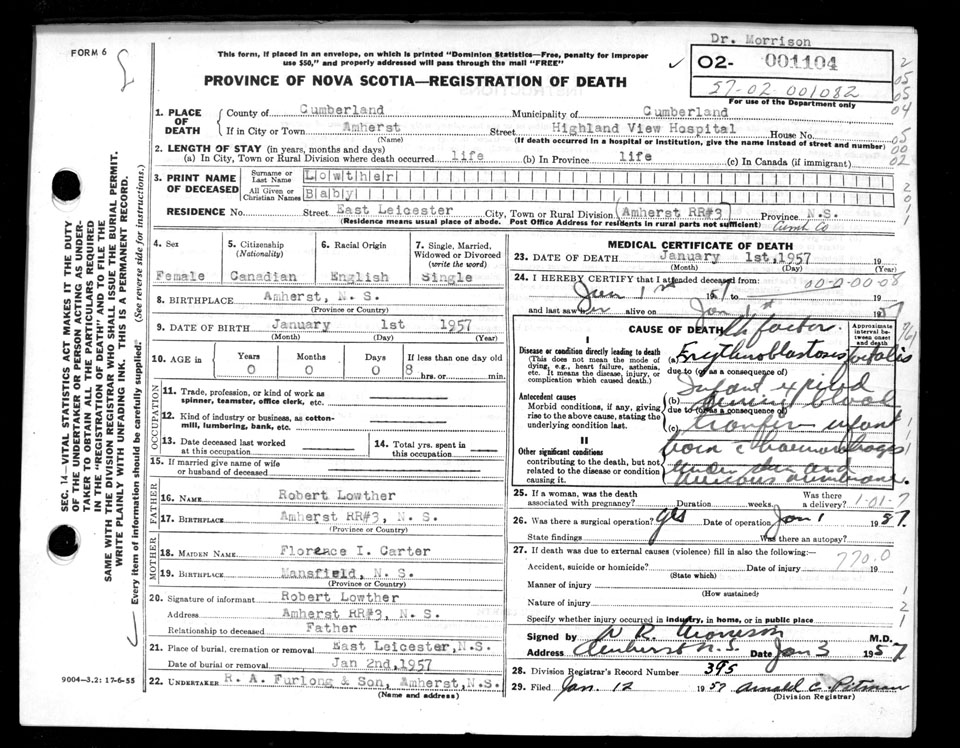 FORM 6
Dr. Morrison
This form, if placed in an envelope, on which is printed "Dominion Statistics—Free, penalty for improper
use $50," and properly addressed will pass through the mail "FREE"
02- 001104
57-02-001082
For use of the Department only
PROVINCE OF NOVA SCOTIA—REGISTRATION OF DEATH
1. PLACE OF DEATH
County of Cumberland Municipality of Cumberland
If in City or Town Amherst Street Highland View Hospital House No.
(Name) (If death occurred in a hospital or institution, give the name instead of street and number)
2. LENGTH OF STAY (in years, months and days)
(a) In City, Town or Rural Division where death occurred life (b) In Province life (c) In Canada (if immigrant)
3. PRINT NAME OF DECEASED
Surname or Last Name Lowther
All Given or Christian Names Baby
RESIDENCE No. Street East Leicester City, Town or Rural Division Amherst RR#3 Province N.S.
(Residence means usual place of abode. Post Office Address for residents in rural parts not sufficient) Cumb Co
4. Sex Female
5. Citizenship (Nationality) Canadian
6. Racial Origin English
7. Single, Married, Widowed or Divorced (write the word) Single
8. BIRTHPLACE Amherst, N. S.
(Province or Country)
9. DATE OF BIRTH January 1st 1957
(Month) (Day) (Year)
10. AGE in Years Months Days If less than one day old
0 0 0 8 hrs. or min.
OCCUPATION
11. Trade, profession, or kind of work as spinner, teamster, office clerk, etc.
12. Kind of industry or business, as cotton-mill, lumbering, bank, etc.
13. Date deceased last worked at this occupation
14. Total yrs. spent in this occupation
15. If married give name of wife or husband of deceased
FATHER
16. NAME Robert Lowther
17. BIRTHPLACE Amherst RR#3, N. S.
MOTHER
18. MAIDEN NAME Florence I. Carter
19. BIRTHPLACE Mansfield, N. S.
(Province or Country)
20. Signature of informant Robert Lowther
Address Amherst RR#3, N. S.
Relationship to deceased Father
21. Place of burial, cremation or removal East Leicester, N.S.
Date of burial or removal Jan 2nd, 1957
22. UNDERTAKER R. A. Furlong & Son, Amherst, N.S.
(Name and address)
9004—3.2: 17-6-55
SEC. 14—VITAL STATISTICS ACT MAKES IT THE DUTY
OF THE UNDERTAKER OR PERSON ACTING AS UNDER-
TAKER TO OBTAIN ALL THE PARTICULARS REQUIRED
IN THE "REGISTRATION OF DEATH" AND TO FILE THE
SAME WITH THE DIVISION REGISTRAR WHO SHALL ISSUE THE BURIAL PERMIT.
WRITE PLAINLY WITH UNFADING INK. THIS IS A PERMANENT RECORD.
Every item of information should be carefully supplied. (See reverse side for instructions.)
MEDICAL CERTIFICATE OF DEATH
23. DATE OF DEATH January 1st, 1957 19
(Month) (Day) (Year)
24. I HEREBY CERTIFY that I attended deceased from: 00-0-00-08
Jan 1st 1957 to Jan 1st 1957
and last saw her alive on
CAUSE OF DEATH Rh factor.
Approximate interval between onset and death
I
Disease or condition directly leading to death
(This does not mean the mode of dying, e.g., heart failure, asthenia, etc. It means the disease, injury, or complication which caused death.)
(a) Erythroblastosis foetalis
due to (or as a consequence of)
Antecedent causes
Morbid conditions, if any, giving rise to the above cause, stating the underlying condition last.
(b) Infant expired during blood
due to (or as a consequence of)
(c) transfer infant
II
Other significant conditions
contributing to the death, but not related to the disease or condition causing it.
born c haemorrhages
under skin and
mucous membrane.
25. If a woman, was the death associated with pregnancy? Duration weeks. Was there a delivery? 1-01-7
26. Was there a surgical operation? yes Date of operation Jan 1 1957.
State findings Was there an autopsy?
27. If death was due to external causes (violence) fill in also the following:—
Accident, suicide or homicide? Date of injury 19
(State which) 770.0
Manner of injury
(How sustained)
Nature of injury
Specify whether injury occurred in industry, in home, or in public place
Signed by R. Morrison M.D.
Address Amherst N.S. Date Jan 3 1957
28. Division Registrar's Record Number 395
29. Filed Jan. 12 1957 Arnold C
(Division Registrar)